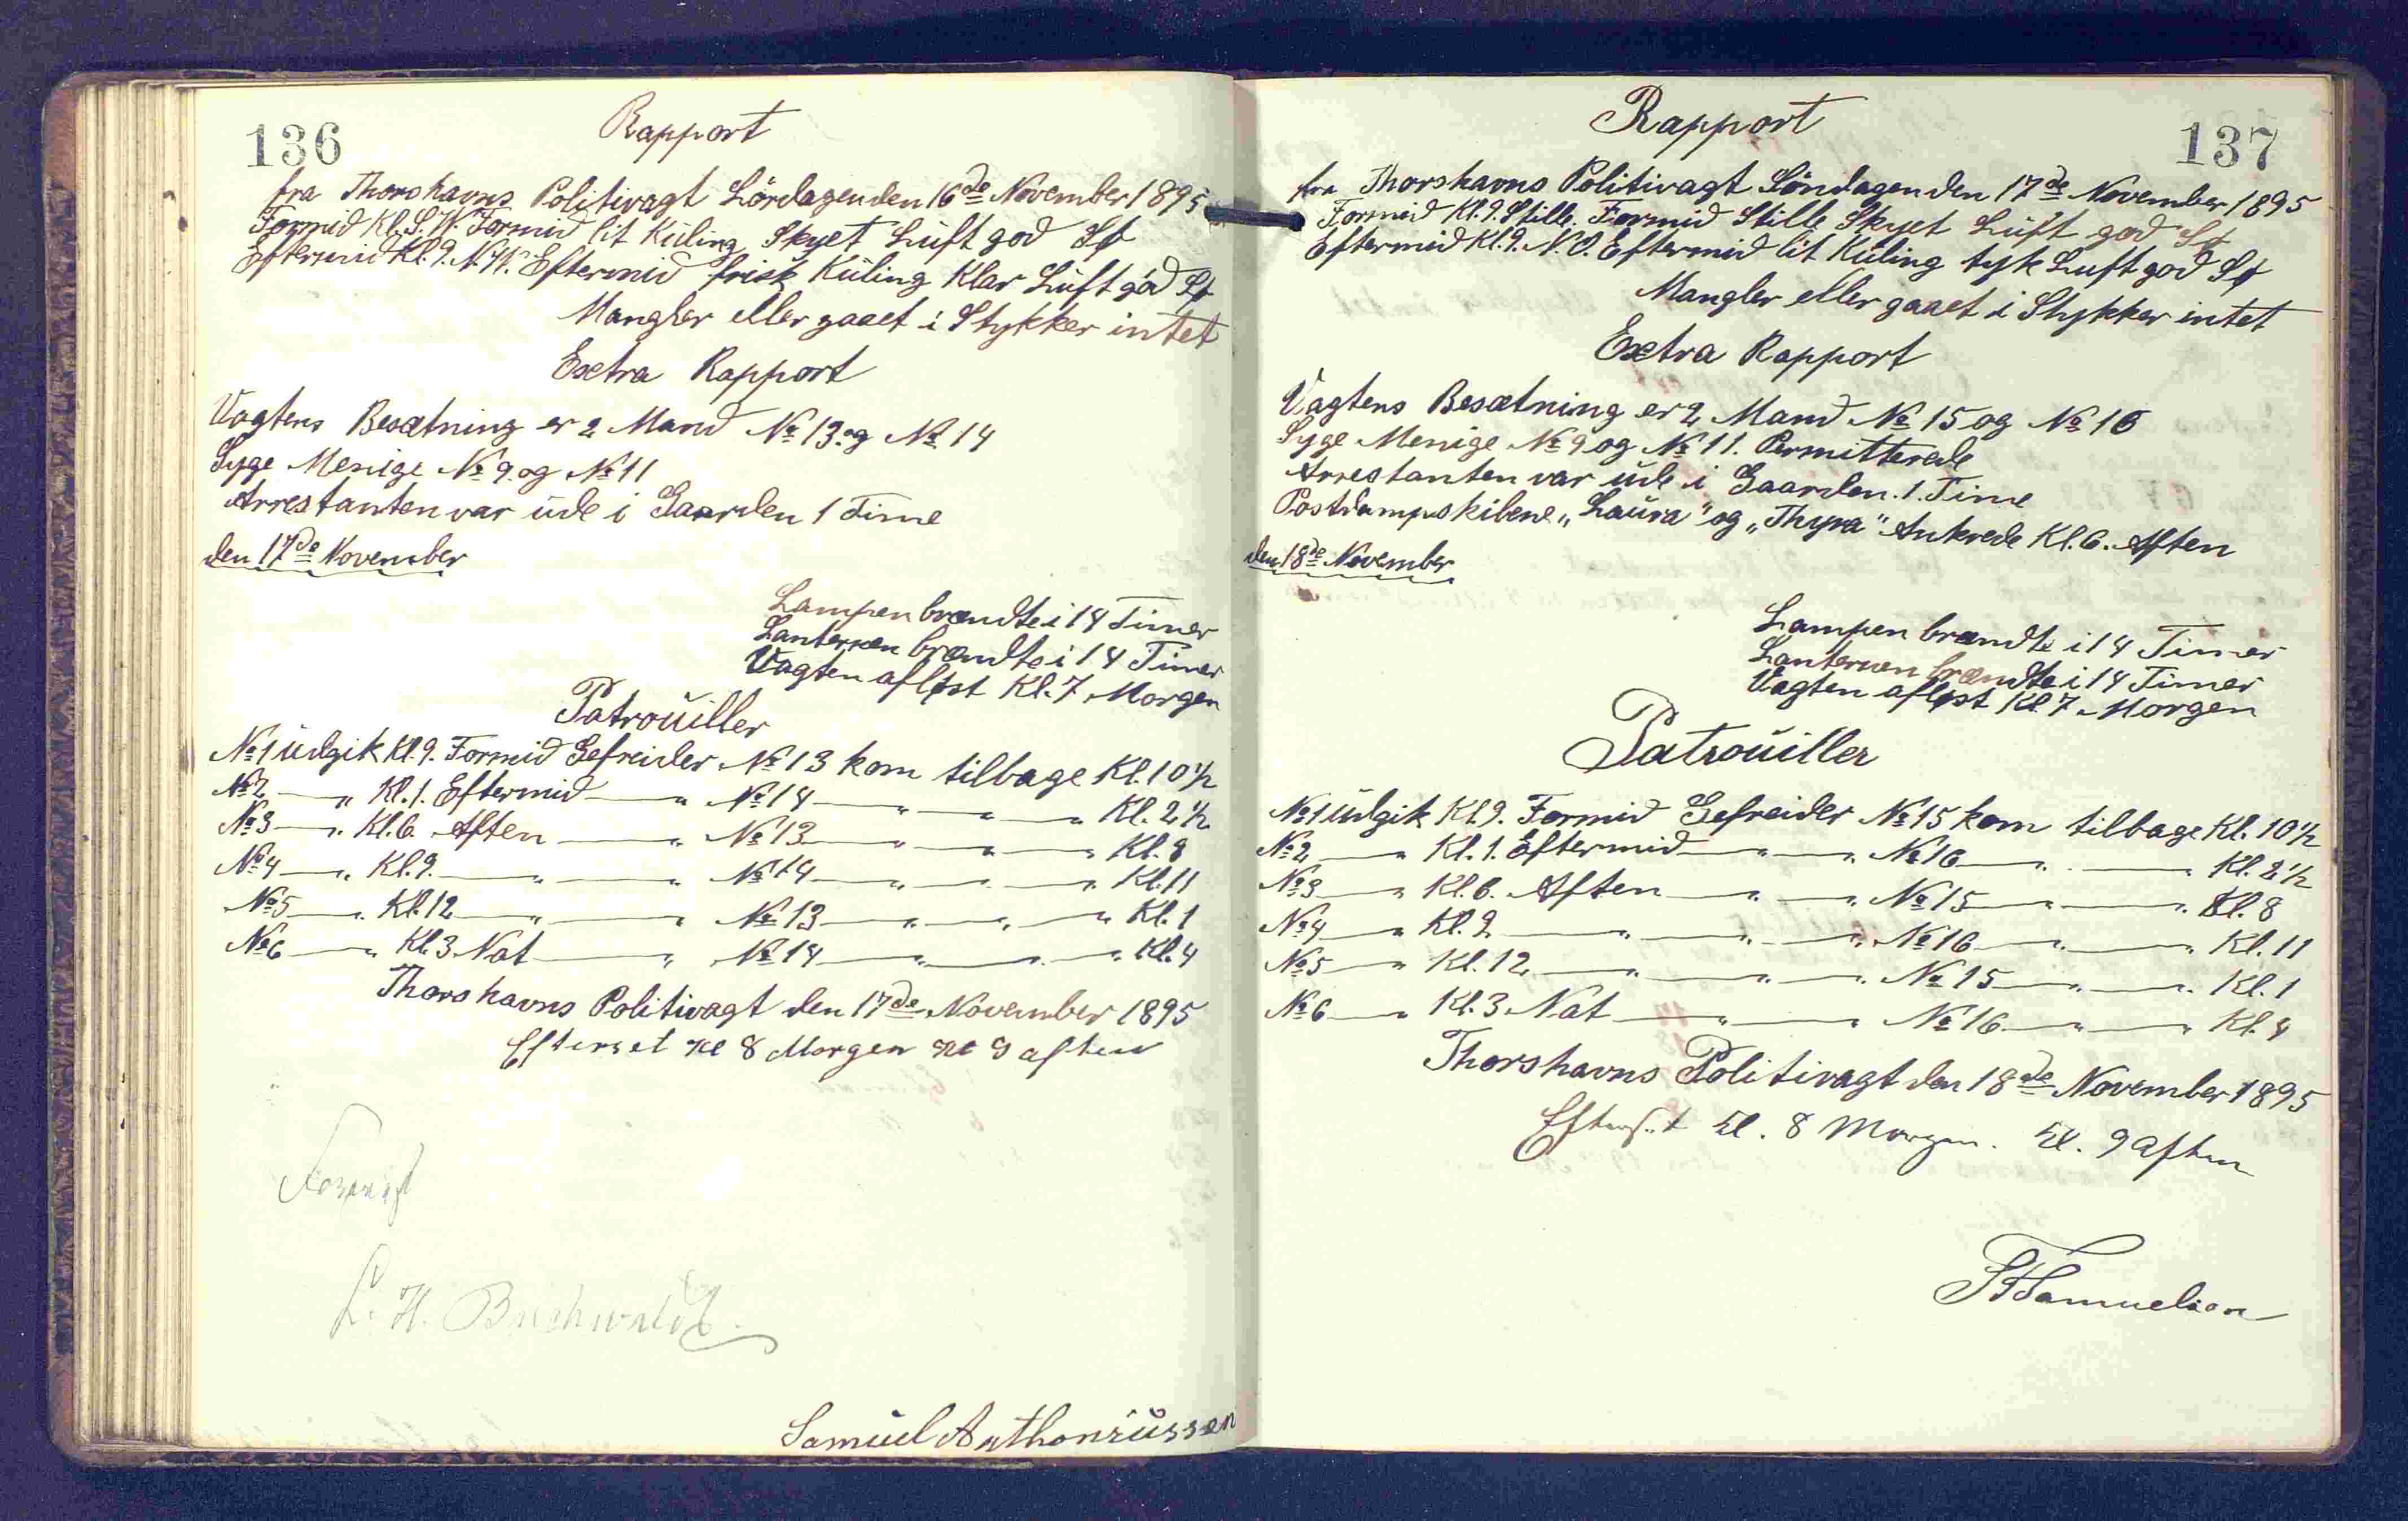 136
Rapport
fra Thorshavns Politivagt Lördagen den 16de November 1895
Formid Kl. S.W. Formid lit Küling Skyet Luft god Sø
Eftermid Kl. 9. N.W. Eftermid frisk Küling Klar Lüft god Sø
Mangler eller gaaet i Stykker intet
Extra Rapport
Vagtens Besætning er 2 Mand № 13. og № 14
Syge Menige № 9. og № 11
Arrestanten var üde i Gaarden 1 Time
den 17de November
Lampen brændte i 14 Timer
Lanternen brændte i 14 Timer
Vagten afløst Kl. 7 Morgen
Patroüiller
№ 1 üdgik Kl. 9. Formid Gefreider № 13 kom tilbage Kl. 10½
№ 2 — " Kl. 1. Eftermid — " № 14 — " — " Kl. 2½
№ 3 — " Kl. 6 Aften — " № 13 — " — " Kl. 8
№ 4 — " Kl. 9. — " — " № 14 — " — " Kl. 11
№ 5 — " Kl. 12 — " — " № 13 — " — " — " Kl. 1
№ 6 — " Kl. 3 Nat — " № 14 — " — " Kl. 4
Thorshavns Politivagt den 17de November 1895
Efterset Kl 8 Morgen Kl 9 aften
L. H. Buchwaldt.
Samüel Anthoniüssen
137
Rapport
fra Thorshavns Politivagt Söndagen den 17de November 1895
Formid Kl. 9. Stille. Formid Stille Skyet Lüft god Sø
Eftermid Kl. 9. N.O. Eftermid lit Küling tyk Luft god Sø
Mangler eller gaaet i Stykker intet
Extra Rapport
Vagtens Besætning er 2 Mand № 15 og № 16
Syge Menige № 9 og № 11. Permitterede
Arrestanten var üde i Gaarden. 1. Time
Postdampskibene „Laüra" og „Thyra" Ankrede Kl. 6. Aften
den 18de November
Lampen brændte i 14 Timer
Lanternen brændte i 14 Timer
Vagten afløst Kl 7 Morgen
Patroüiller
№ 1 üdgik Kl. 9. Formid Gefreider № 15 kom tilbage Kl. 10½
№ 2 — " Kl. 1. Eftermid — " — " № 16 — " — " Kl. 2½
№ 3 — " Kl. 6. Aften — " — " № 15 — " — " Kl. 8
№ 4 — " Kl. 9 — " — " — " № 16 — " — " Kl. 11
№ 5 — " Kl. 12 — " — " — " № 15 — " — " Kl. 1
№ 6 — " Kl. 3 Nat — " — " № 16. — " — " Kl. 4
Thorshavns Politivagt den 18de November 1895
Efterset Kl. 8 Morgen. Kl. 9 aften
Samuelsen